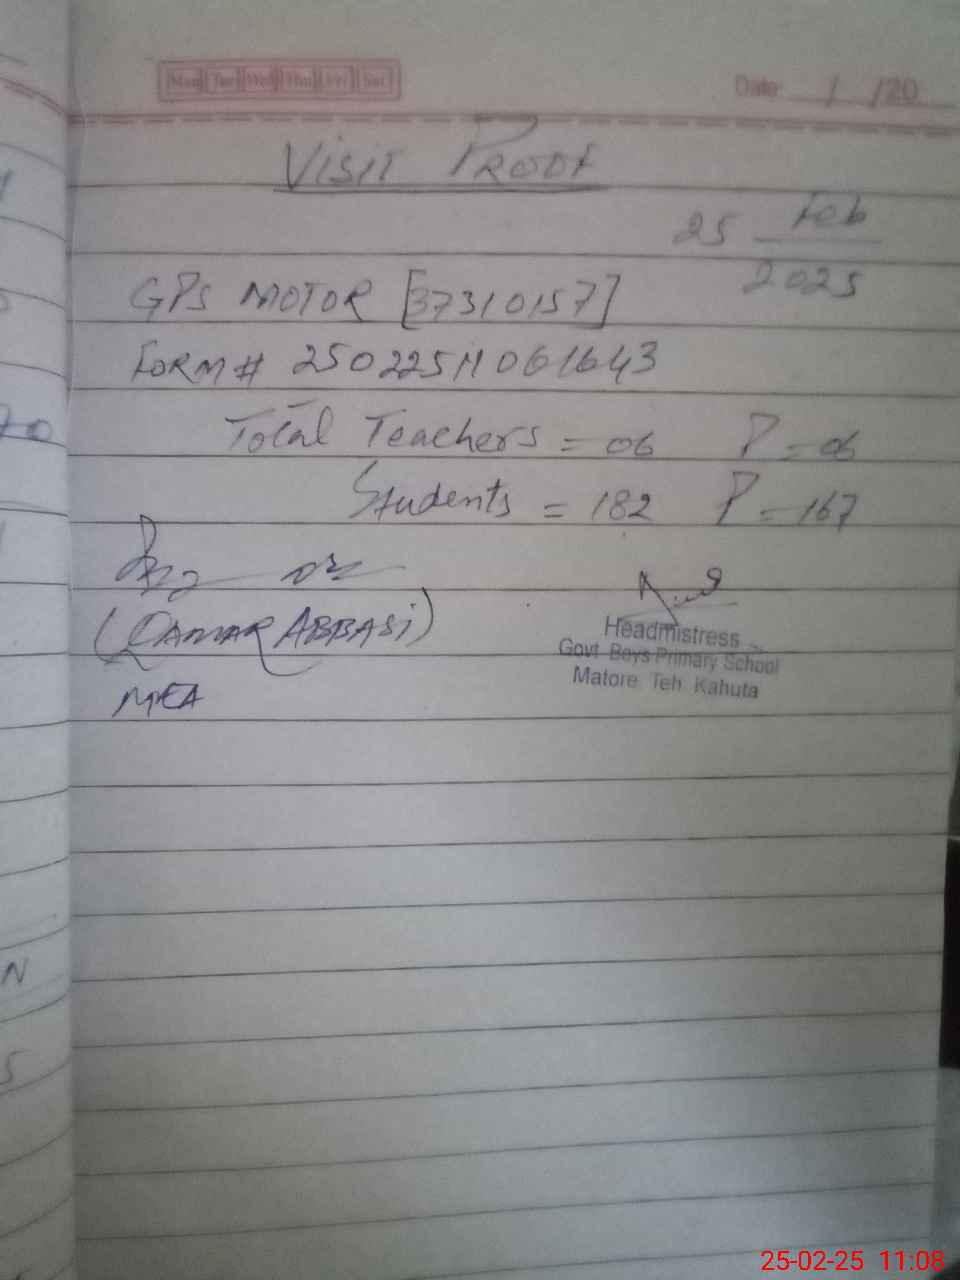 Mon Tue Wed Thu Fri Sat
Date / /20
VISIT PROOF
25 Feb
2025
GPS MOTOR [37310157]
FORM# 250225M061643
Total Teachers = 06 P = 06
Students = 182 P = 167
(QAMAR ABBASI)
MEA
Headmistress
Govt Boys Primary School
Matore Teh Kahuta
N
S
25-02-25 11:08